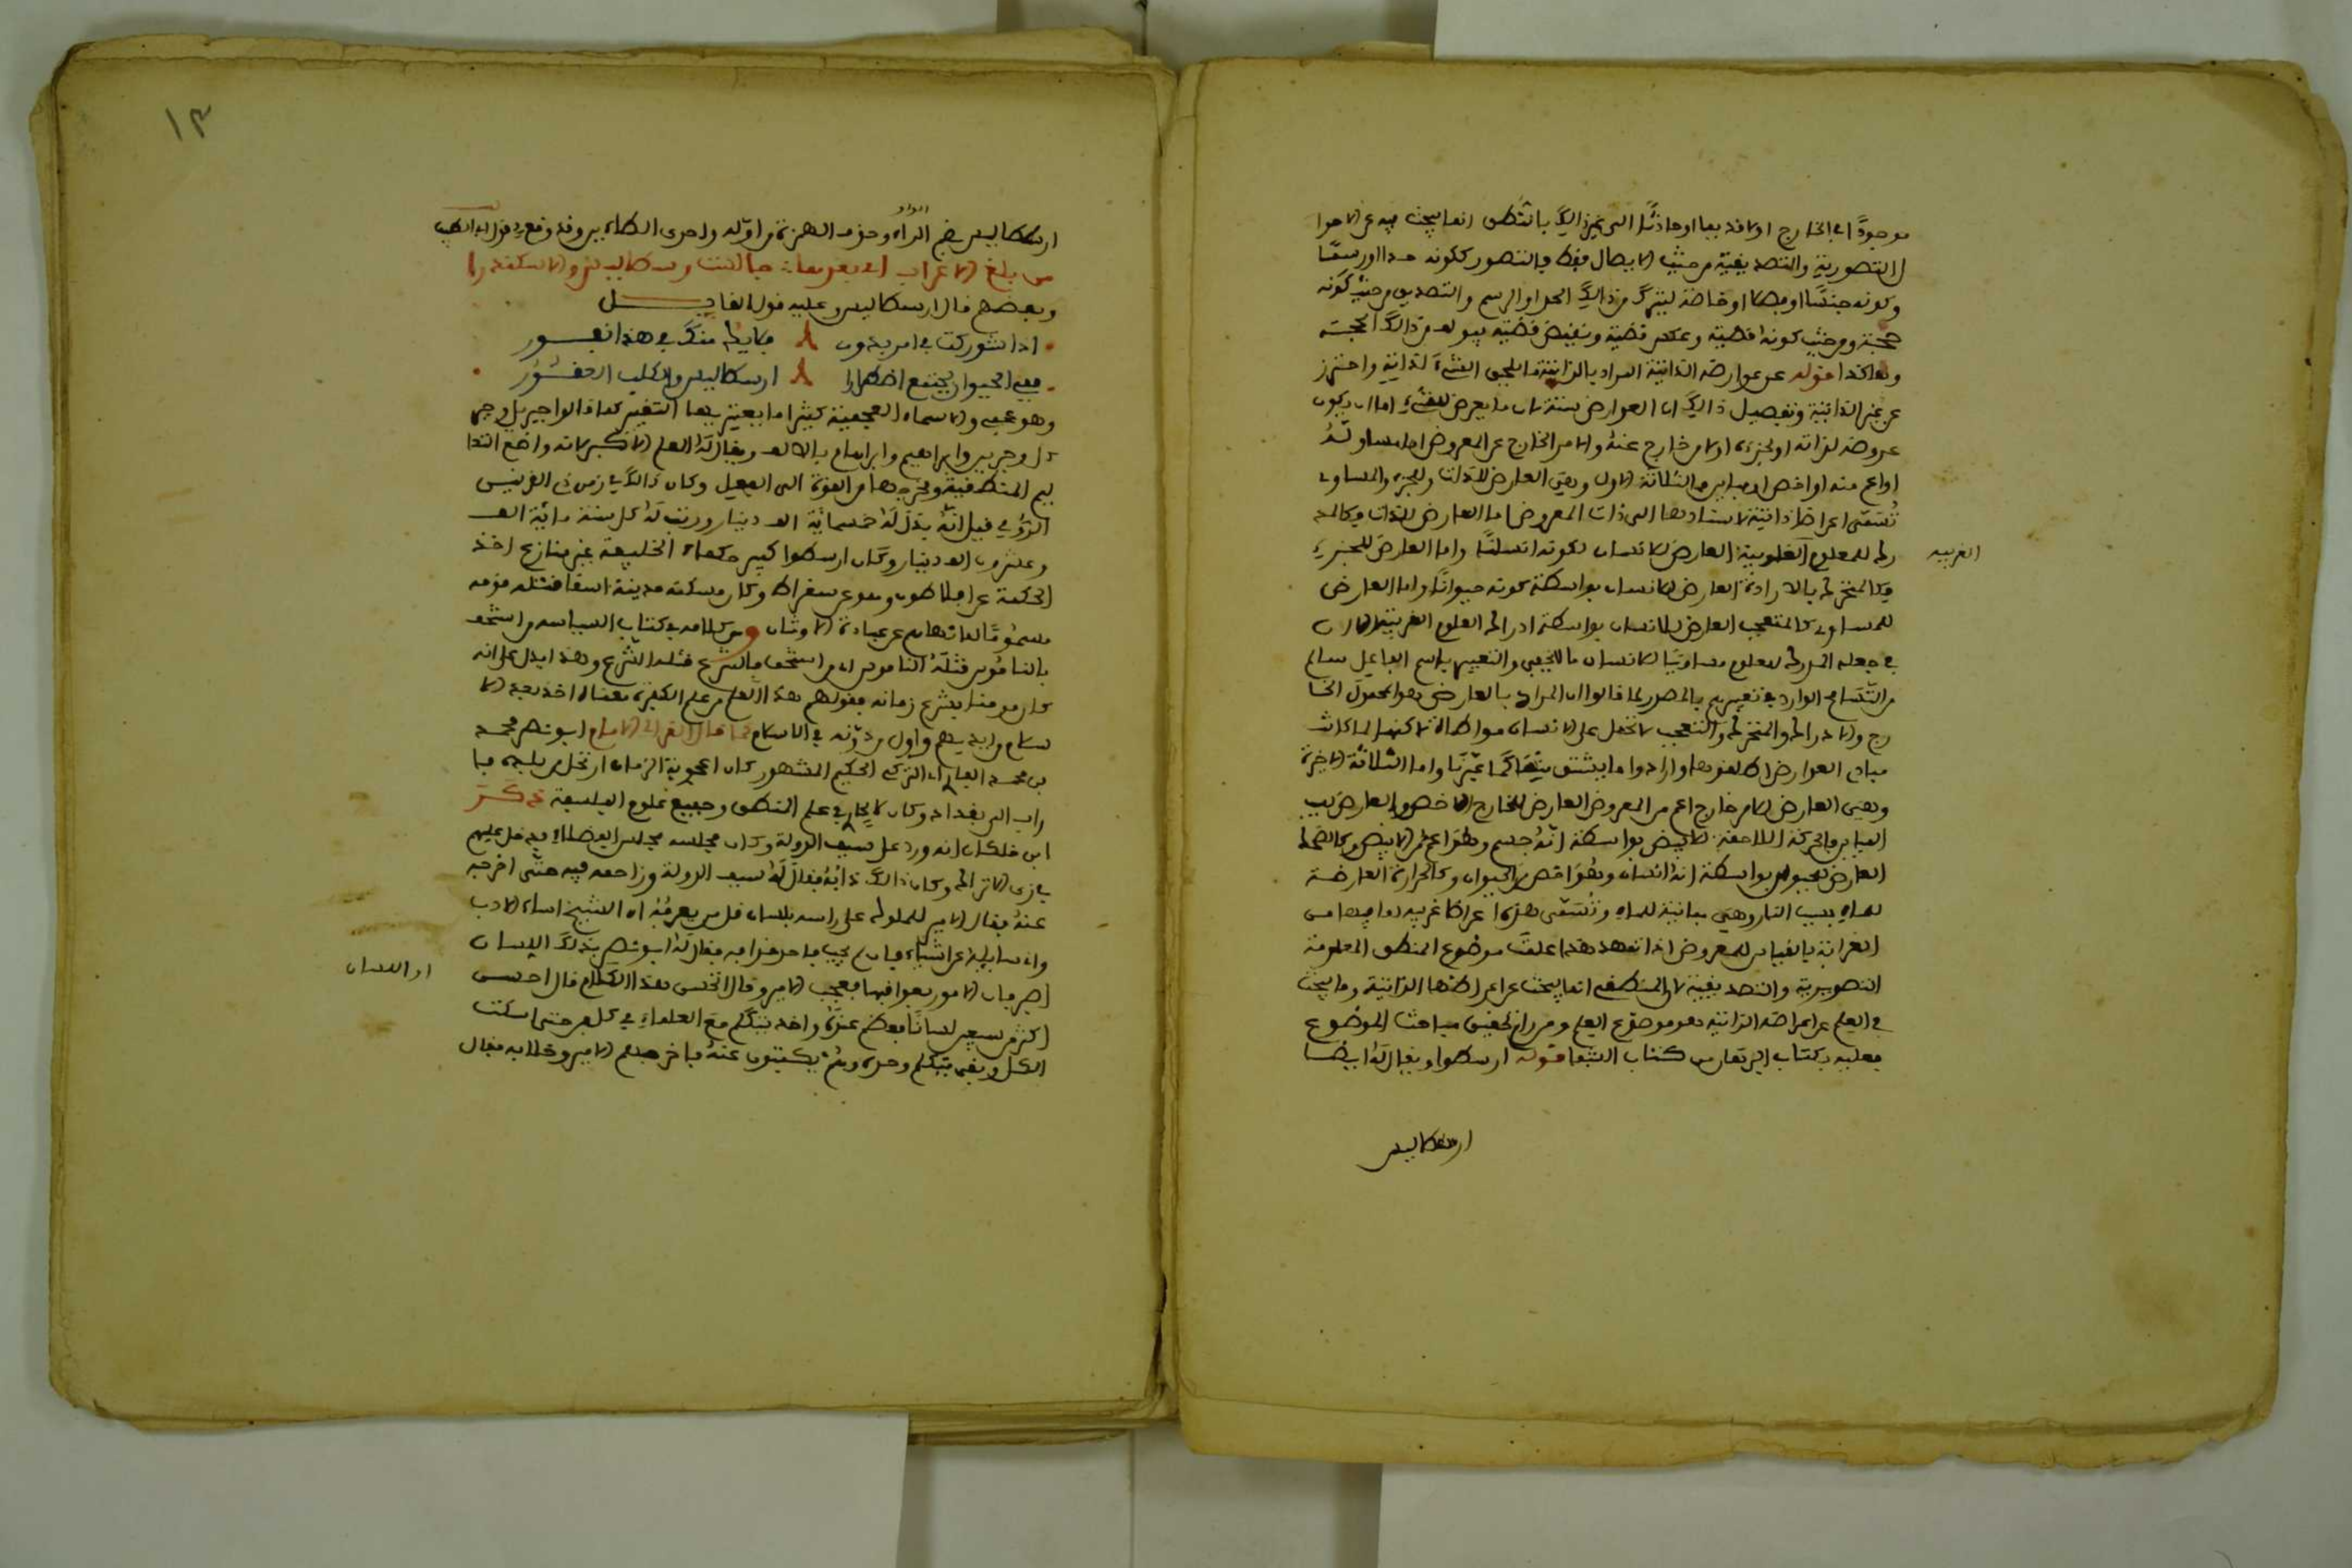 موجودًا في الخارج او لا قديما او حادثًا الى غير ذالك بالمنطق انما يبحث فيه عن الاحوا
ل التصورية والتصديقية من حيث الايصال فقط فالتصور ككونه حدا او رسمًا
وكونه جنسًا او فصلا او خاصة ليتركب من ذالك الحد او الرسم والتصديق من حيث كونه
حجة ومن حيث كونه قضية وعكس قضية ونقيض قضية ليولف من ذالك الحجة
وهكذا قوله عن عوارضه الذاتية المراد بالذاتية ما يلحق الشيء لذاته واحترز
عن غير الذاتية وتفصيل ذالك ان العوارض ستة لان ما يعرض للشيء اما ان يكون
عروضه لذاته او لجزءه او لامر خارج عنه والامر الخارج عن المعروض اما مساو له
او اعم منه او اخص او مباين فالثلاثة الاول وهي العارض للذات وللجزء والمساوى
تُسمّى اعراضا ذاتية لاستنادها الى ذات المعروض اما العارض للذات فكالمد
رك للمعلوم الغريبة العارض للانسان لكونه انسانًا واما العارض للجزء
فكالمتحرك بالارادة العارض للانسان بواسطة كونه حيوانًا واما العارض
للمساوى كالمتعجب العارض للانسان بواسطة ادراك العلوم الغريبة
في جعله المدرك للعلوم مساويًا للانسان والتعبير باسم الفاعل سالم
من التسامح الوارد في تعبيرهم بالمصدر لما قالوا ان المراد بالعارض هو المحمول الخا
رج والادراك والتحرك والتعجب لا تحمل على الانسان مواطاة لاكنها لما كانت
مبادى العوارض اطلقوها وارادوا ما يشتق منها واما الثلاثة الاخيرة
وهي العارض لامر خارج اعم من المعروض والعارض للخارج الاخص والعارض بسبب
المباين فالحركة اللاحقة للابيض بواسطة انه جسم وهو اعم من الابيض وكالضحك
العارض للحيوان بواسطة انه انسان وهو اخص من الحيوان وكالحرارة العارضة
للماء بسبب النار وهي مباينة للماء وتُسمّى هذه اعراضا غريبة لما فيها من
الغرابة بالقياس للمعروض اذا تمهد هذا علمت موضوع المنطق المعلومة
التصورية والتصديقية لان المنطقي انما يبحث عن اعراضها الذاتية وما يبحث
في العلم عن اعراضه الذاتية هو موضوع العلم ومن رام تحقيق مباحث الموضوع
فعليه بكتاب البرهان من كتاب الشفا قوله ارسطوا ويقال له ايضا
الغريبه
ارسطاليس
١٣
ارسطاليس بضم الراء وحذف الهمزة من اوله واحدى الطاءين وقد وقع في قول ابي الطيب
من مبلغ الاعراب اني بعدها جالست رسطاليس والاسكندرا
وبعضهم قال ارسطاليس وعليه قول القايل
اذا شوركت في امر بدون فلا يك منك في هذا نفور
ففي الحيوان يجتمع اضطرارا ارسطاليس والكلب العقور
وهو عجمي والاسماء العجمية كثيرا ما يعتريها التغيير كما قالوا جبريل وجبرا
ل وجبرين وابراهيم وابراهام بالالف ويقال له المعلم الاكبر لانه واضع التعا
ليم المنطقية ومخرجها من القوة الى الفعل وكان ذالك في زمن ذى القرنين
الرومي قيل انه بذل له خمسمائة الف دينار ورتب له كل سنة مائة الف
وعشرين الف دينار وكان ارسطوا كبير حكماء الخليقة بغير منازع اخذ
الحكمة عن افلاطون وهو عن سقراط وكان مسكنه مدينة اسقا فقتله قومه
مسمومًا لما نهاهم عن عبادة الاوثان ومن كلامه في كتاب السياسه من استخف
بالناموس قتله الناموس اى من استخف بالشرع قتله الشرع وهذا يدل على انه
كان مومنا بشرع زمانه فقولهم هذا العلم من علم الكفرة معناه اخذ بعد الا
سلام من ايديهم واول من دوّنه في الاسلام كما قال الغزالي الامام ابو نصر محمد
بن محمد الفاراى التركي الحكيم المشهور كان اعجوبة الزمان ارتحل من بلده فا
راب الى بغداد وكان لا يجارى في علم المنطق وجميع علوم الفلسفة ذكر
ابن خلكان انه ورد على سيف الدولة وكان مجلسه مجلس الفضلاء فدخل عليهم
بزى الاتراك وكان ذالك دابه فقال له سيف الدولة وزاحمه فيه حتّى اخرجه
عنه فقال الامير للمملوك على راسه بلسان قل من يعرفه ان الشيخ اساء الادب
وانا سايله عن اشياء فان لم يجب فاخرقوا به فقال له ابو نصر بذلك اللسان
اصبر فان الامور بعواقبها فعجب الامير وقال اتحسن هذا الكلام قال احسن
اكثر من سبعين لسانًا فعظم عنده واخذ يتكلم مع العلماء في كل فن حتى اسكت
الكل وبقي يتكلم وحده وهم يكتبون عنه فاخرجهم الامير وخلا به فقال